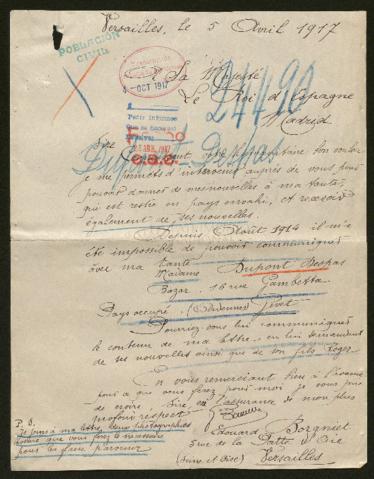 Versailles, le 5 Avril 1917
POBLACIÓN
CIVIL
OCT 1917
Sa Majesté
Le Roi d'Espagne
Madrid
24490
Sire
Dupont-Bespas
votre
je me permets d'intervenir auprès de vous pour
pouvoir donner de mes nouvelles à ma tante,
qui est restée en pays envahi, et recevoir
également de ses nouvelles.
Depuis Août 1914 il m'a
été impossible de pouvoir communiquer
avec ma tante
Madame Dupont Bespas
Bazar. 16 rue Gambetta
Givet
Pays occupé. (Ardennes)
Pourriez-vous lui communiquer
le contenu de ma lettre en lui demandant
de ses nouvelles ainsi que de son fils Roger
En vous remerciant bien à l'avance
pour ce que vous ferez pour moi je vous prie
de croire, Sire, à l'assurance de mon plus
profond respect
Edouard Sorgniet
rue de la Patte d'Oie
Versailles
(Seine et Oise)
P. S.
Je joins à ma lettre deux photographies
que vous ferez le nécessaire
pour les faire parvenir